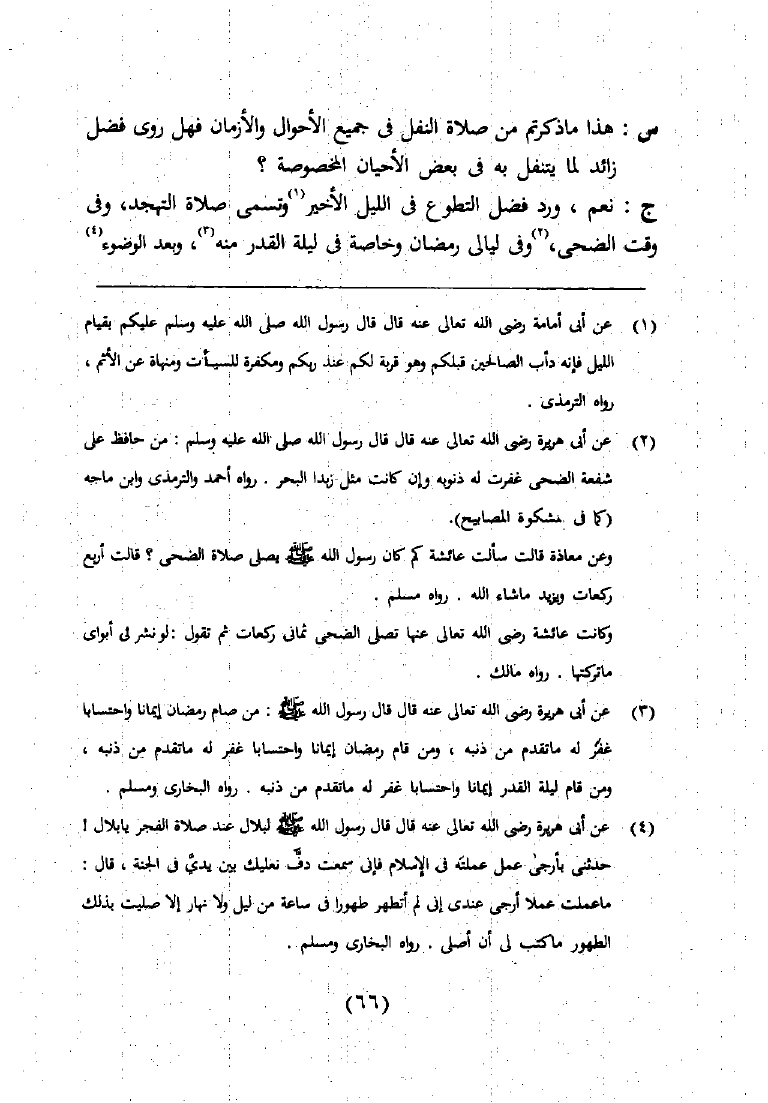 س : هذا ماذكرتم من صلاة النفل فى جميع الأحوال والأزمان فهل روى فضل
زائد لما يتنفل به فى بعض الأحيان المخصوصة ؟
ج : نعم ، ورد فضل التطوع فى الليل الأخير(١) وتسمى صلاة التهجد، وفى
وقت الضحى،(٢) وفى ليالى رمضان وخاصة فى ليلة القدر منه(٣)، وبعد الوضوء(٤)
(١) عن أبى أمامة رضى الله تعالى عنه قال قال رسول الله صلى الله عليه وسلم عليكم بقيام
الليل فإنه دأب الصالحين قبلكم وهو قربة لكم عند ربكم ومكفرة للسيأت ومنهاة عن الأثم ،
رواه الترمذى .
(٢) عن أبى هريرة رضى الله تعالى عنه قال قال رسول الله صلى الله عليه وسلم : من حافظ على
شفعة الضحى غفرت له ذنوبه وإن كانت مثل زبدا البحر . رواه أحمد والترمذى وابن ماجه
(كما فى مشكوة المصابيح).
وعن معاذة قالت سألت عائشة كم كان رسول الله ﷺ يصلى صلاة الضحى ؟ قالت أربع
ركعات ويزيد ماشاء الله . رواه مسلم .
وكانت عائشة رضى الله تعالى عنها تصلى الضحى ثمانى ركعات ثم تقول : لو نشر فى أبواى
ماتركتها . رواه مالك .
(٣) عن أبى هريرة رضى الله تعالى عنه قال قال رسول الله ﷺ : من صام رمضان إيمانا واحتسابا
غفر له ماتقدم من ذنبه ، ومن قام رمضان إيمانا واحتسابا غفر له ماتقدم من ذنبه ،
ومن قام ليلة القدر إيمانا واحتسابا غفر له ماتقدم من ذنبه . رواه البخارى ومسلم .
(٤) عن أبى هريرة رضى الله تعالى عنه قال قال رسول الله ﷺ لبلال عند صلاة الفجر يابلال !
حدثنى بأرجىٰ عمل عملته فى الإسلام فإنى سمعت دفّ نعليك بين يديّ فى الجنة ، قال :
ماعملت عملا أرجى عندى إنى لم أتطهر طهورا فى ساعة من ليل ولا نهار إلا صليت بذلك
الطهور ماكتب لى أن أصلى . رواه البخارى ومسلم .
(٦٦)